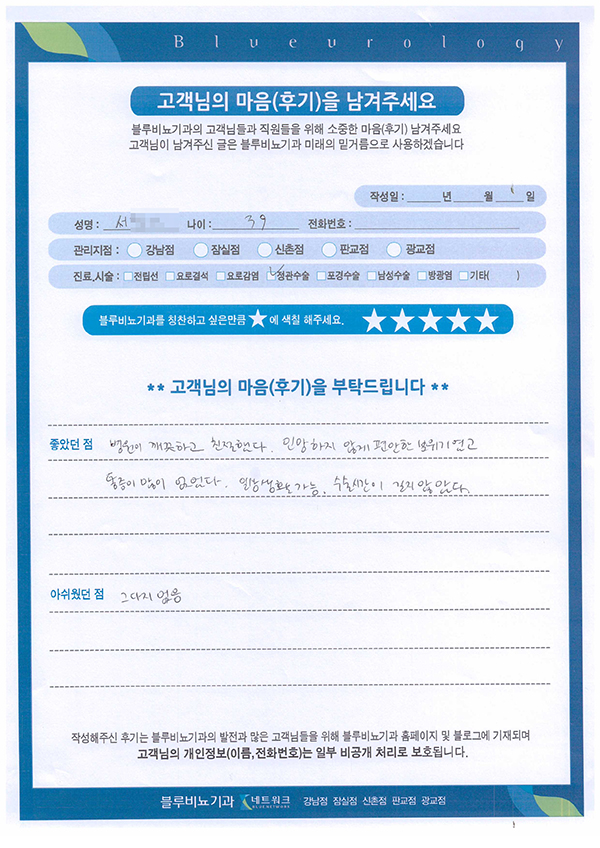 Blueurology
고객님의 마음(후기)을 남겨주세요
블루비뇨기과의 고객님들과 직원들을 위해 소중한 마음(후기) 남겨주세요
고객님이 남겨주신 글은 블루비뇨기과 미래의 밑거름으로 사용하겠습니다
작성일 : 년 월 일
성명 : 서 나이 : 39 전화번호 :
관리지점 : 강남점 잠실점 신촌점 판교점 광교점
진료.시술 : 전립선 요로결석 요로감염 정관수술 포경수술 남성수술 방광염 기타( )
블루비뇨기과를 칭찬하고 싶은만큼 ★에 색칠 해주세요. ★★★★★
** 고객님의 마음(후기)을 부탁드립니다 **
좋았던 점 병원이 깨끗하고 친절했다. 민망하지 않게 편안한 분위기였고
통증이 많이 없었다. 일상생활도 가능. 수술시간이 길지 않았다.
아쉬웠던 점 그다지 없음
작성해주신 후기는 블루비뇨기과의 발전과 많은 고객님들을 위해 블루비뇨기과 홈페이지 및 블로그에 기재되며
고객님의 개인정보(이름,전화번호)는 일부 비공개 처리로 보호됩니다.
블루비뇨기과 네트워크 BLUE NETWORK 강남점 잠실점 신촌점 판교점 광교점